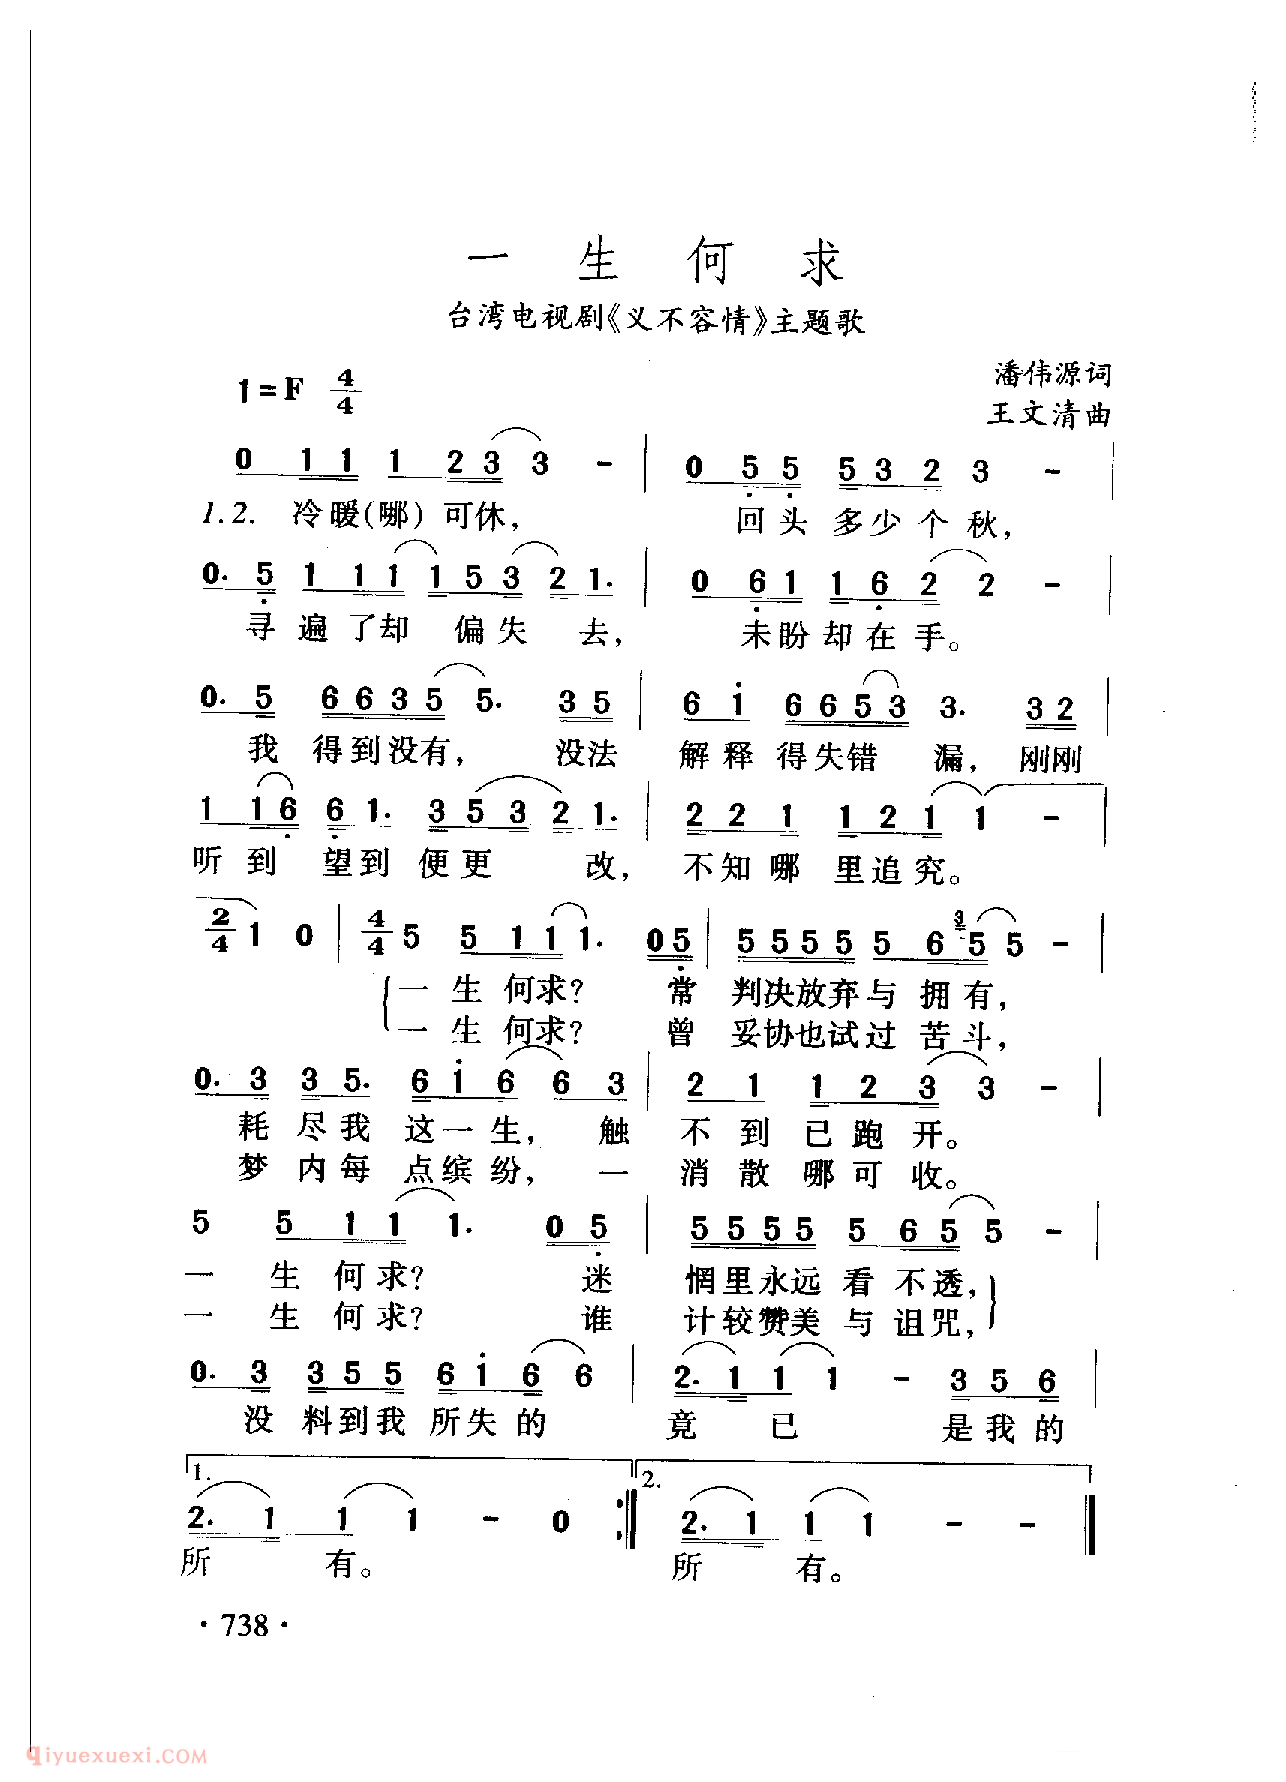 一 生 何 求
台湾电视剧《义不容情》主题歌
1=F 4/4
潘伟源词
王文清曲
0 1 1 1 2 3 3 - | 0 5 5 5 3 2 3 - |
1.2. 冷暖(哪)可休, 回头多少个秋,
0. 5 1 1 1 1 5 3 2 1. | 0 6 1 1 6 2 2 - |
寻遍了却偏失去, 未盼却在手。
0. 5 6 6 3 5 5. 3 5 | 6 1 6 6 5 3 3. 3 2 |
我得到没有, 没法解释得失错漏, 刚刚
1 1 6 6 1. 3 5 3 2 1. | 2 2 1 1 2 1 1 - |
听到望到便更改, 不知哪里追究。
2/4 1 0 | 4/4 5 5 1 1 1. 0 5 | 5 5 5 5 5 6 3 5 5 - |
一生何求? 常判决放弃与拥有,
一生何求? 曾妥协也试过苦斗,
0. 3 3 5. 6 1 6 6 3 | 2 1 1 2 3 3 - |
耗尽我这一生, 触不到已跑开。
梦内每点缤纷, 一消散哪可收。
5 5 1 1 1. 0 5 | 5 5 5 5 5 6 5 5 - |
一生何求? 迷惘里永远看不透,
一生何求? 谁计较赞美与诅咒,
0. 3 3 5 5 6 1 6 6 | 2. 1 1 1 - 3 5 6 |
没料到我所失的竟已是我的
1. 2.
2. 1 1 1 - 0 :‖ 2. 1 1 1 - - ‖
所有。 所有。
· 738 ·
qiyuexuexi.COM